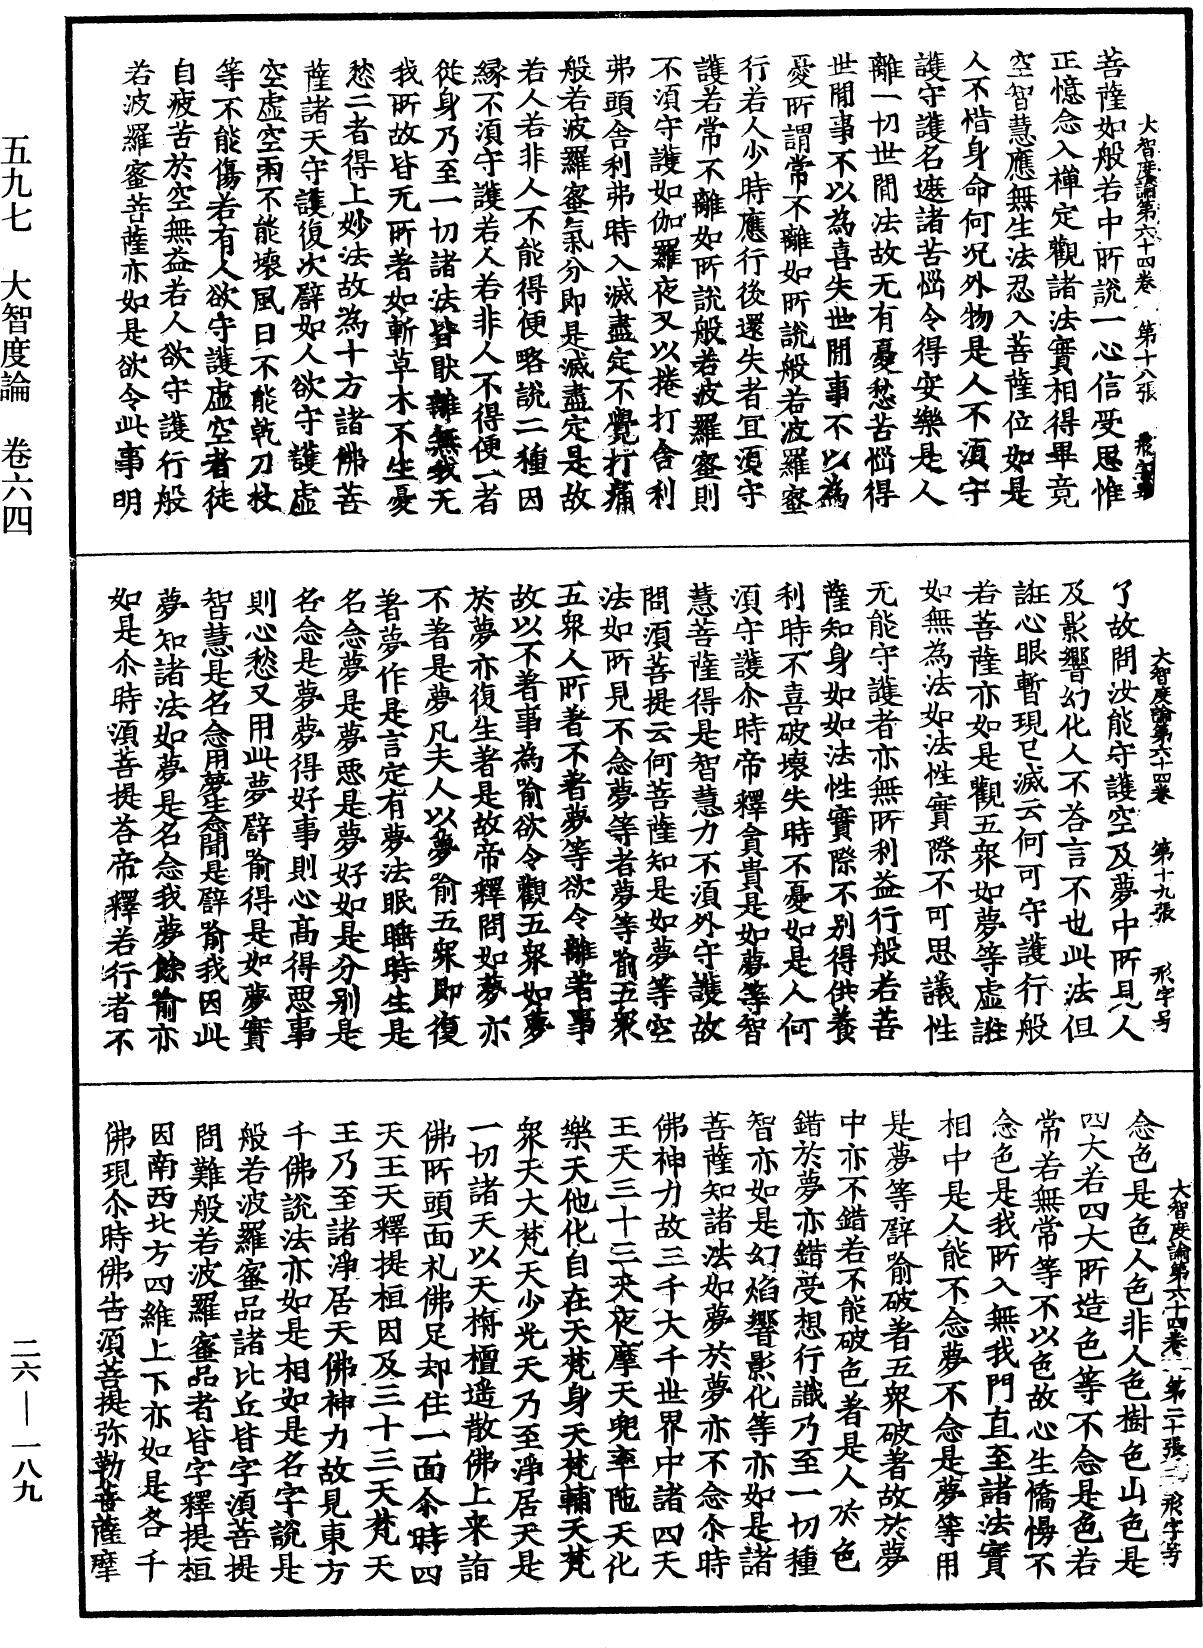 大智度論第六十四卷 第十八張 形字号
菩薩如般若中所說一心信受思惟
正憶念入禪定觀諸法實相得畢竟
空智慧應無生法忍入菩薩位如是
人不惜身命何况外物是人不湏守
護守護名遮諸苦惱令得安樂是人
離一切世間法故无有憂愁苦惱得
世間事不以為喜失世間事不以為
憂所謂常不離如所說般若波羅蜜
行若人少時應行後還失者冝湏守
護若常不離如所說般若波羅蜜則
不湏守護如伽羅夜叉以捲打舍利
弗頭舍利弗時入滅盡定不覺打痛
般若波羅蜜氣分即是滅盡定是故
若人若非人不能得便略說二種因
緣不湏守護若人若非人不得便一者
從身乃至一切諸法皆猒離無我无
我所故皆无所著如斬草木不生憂
愁二者得上妙法故為十方諸佛菩
薩諸天守護復次譬如人欲守護虛
空虛空雨不能壞風日不能乾刀杖
等不能傷若有人欲守護虛空者徒
自疲苦於空無益若人欲守護行般
若波羅蜜菩薩亦如是欲令此事明
大智度論第六十四卷 第十九張 形字号
了故問汝能守護空及夢中所見人
及影響幻化人不荅言不也此法但
誑心眼暫現已滅云何可守護行般
若菩薩亦如是觀五衆如夢等虛誑
如無為法如法性實際不可思議性
无能守護者亦無所利益行般若菩
薩知身如如法性實際不別得供養
利時不喜破壞失時不憂如是人何
湏守護尒時帝釋貪貴是如夢等智
慧菩薩得是智慧力不湏外守護故
問湏菩提云何菩薩知是如夢等空
法如所見不念夢等者夢等喻五衆
五衆人所著不著夢等欲令離著事
故以不著事為喻欲令觀五衆如夢
於夢亦復生著是故帝釋問如夢亦
不著是夢凡夫人以夢喻五衆即復
著夢作是言定有夢法眠睡時生是
名念夢是夢惡是夢好如是分別是
名念是夢夢得好事則心髙得惡事
則心愁又用此夢譬喻得是如夢實
智慧是名念用夢生念聞是譬喻我因此
夢知諸法如夢是名念我夢餘喻亦
如是尒時湏菩提荅帝釋若行者不
大智度論第六十四卷 第二十張 形字号
念色是色人色非人色樹色山色是
四大若四大所造色等不念是色若
常若無常等不以色故心生憍慢不
念色是我所入無我門直至諸法實
相中是人能不念夢不念是夢等用
是夢等譬喻破著五衆破著故於夢
中亦不錯若不能破色著是人於色
錯於夢亦錯受想行識乃至一切種
智亦如是幻焰響影化等亦如是諸
菩薩知諸法如夢於夢亦不念尒時
佛神力故三千大千世界中諸四天
王天三十三天夜摩天兜率陁天化
樂天他化自在天梵身天梵輔天梵
衆天大梵天少光天乃至淨居天是
一切諸天以天栴檀遥散佛上来詣
佛所頭面札佛足却住一面尒時四
天王天釋提桓因及三十三天梵天
王乃至諸淨居天佛神力故見東方
千佛說法亦如是相如是名字說是
般若波羅蜜品諸比丘皆字湏菩提
問難般若波羅蜜品者皆字釋提桓
因南西北方四維上下亦如是各千
佛現尒時佛告湏菩提弥勒菩薩摩
五九七 大智度論 卷六四
二六—一八九